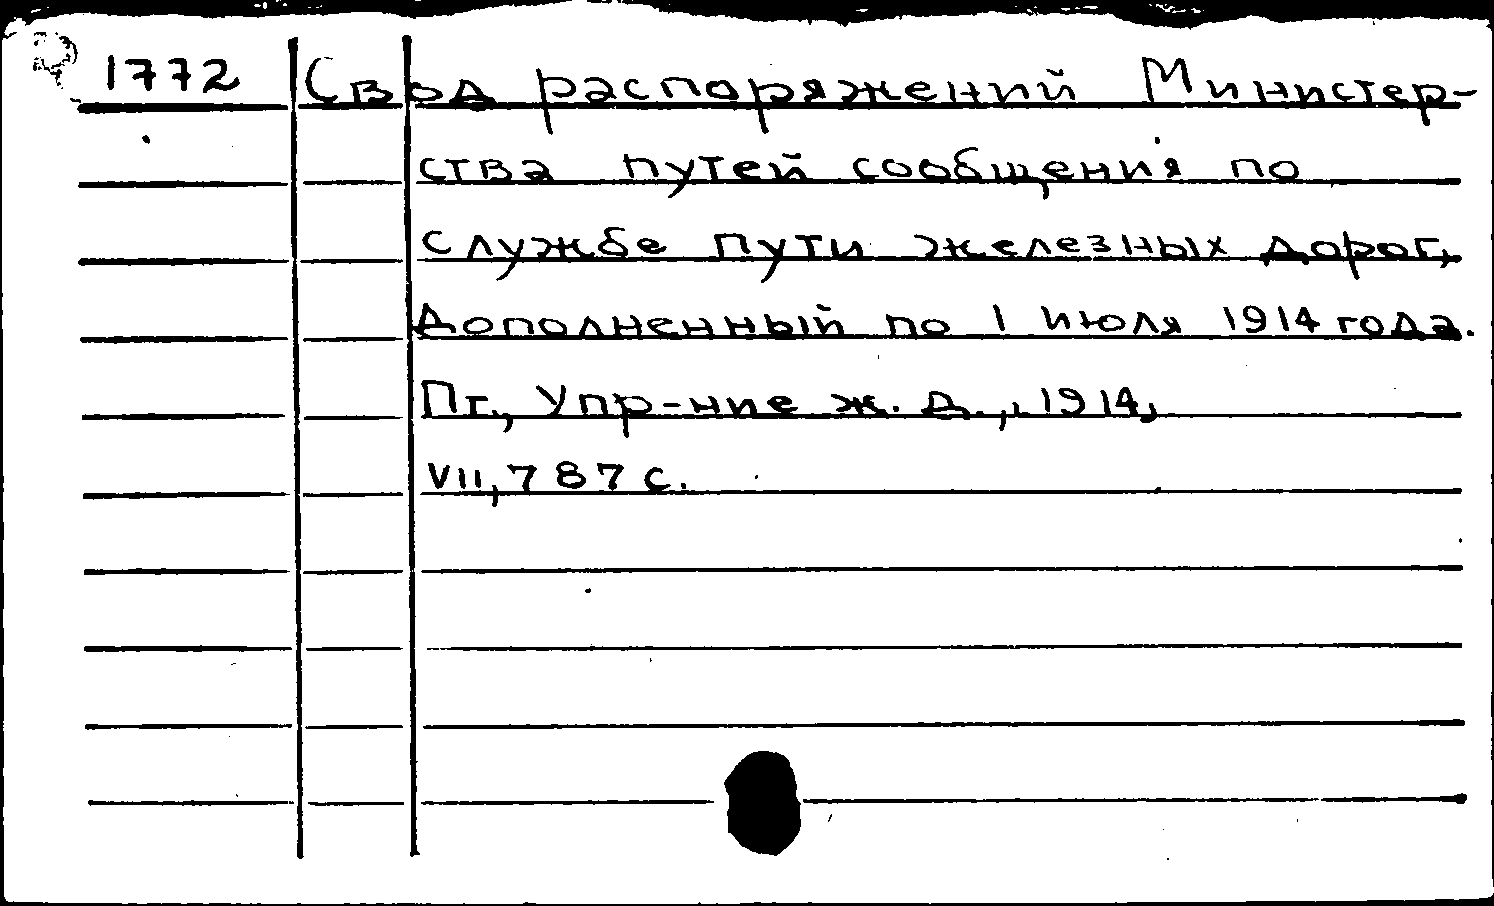 1772 Свод распоряжений Министер-
ства путей сообщения по
службе пути железных дорог,
дополненный по 1 июля 1914 года.
Пг., Упр-ние ж. д., 1914,
VII, 787 с.